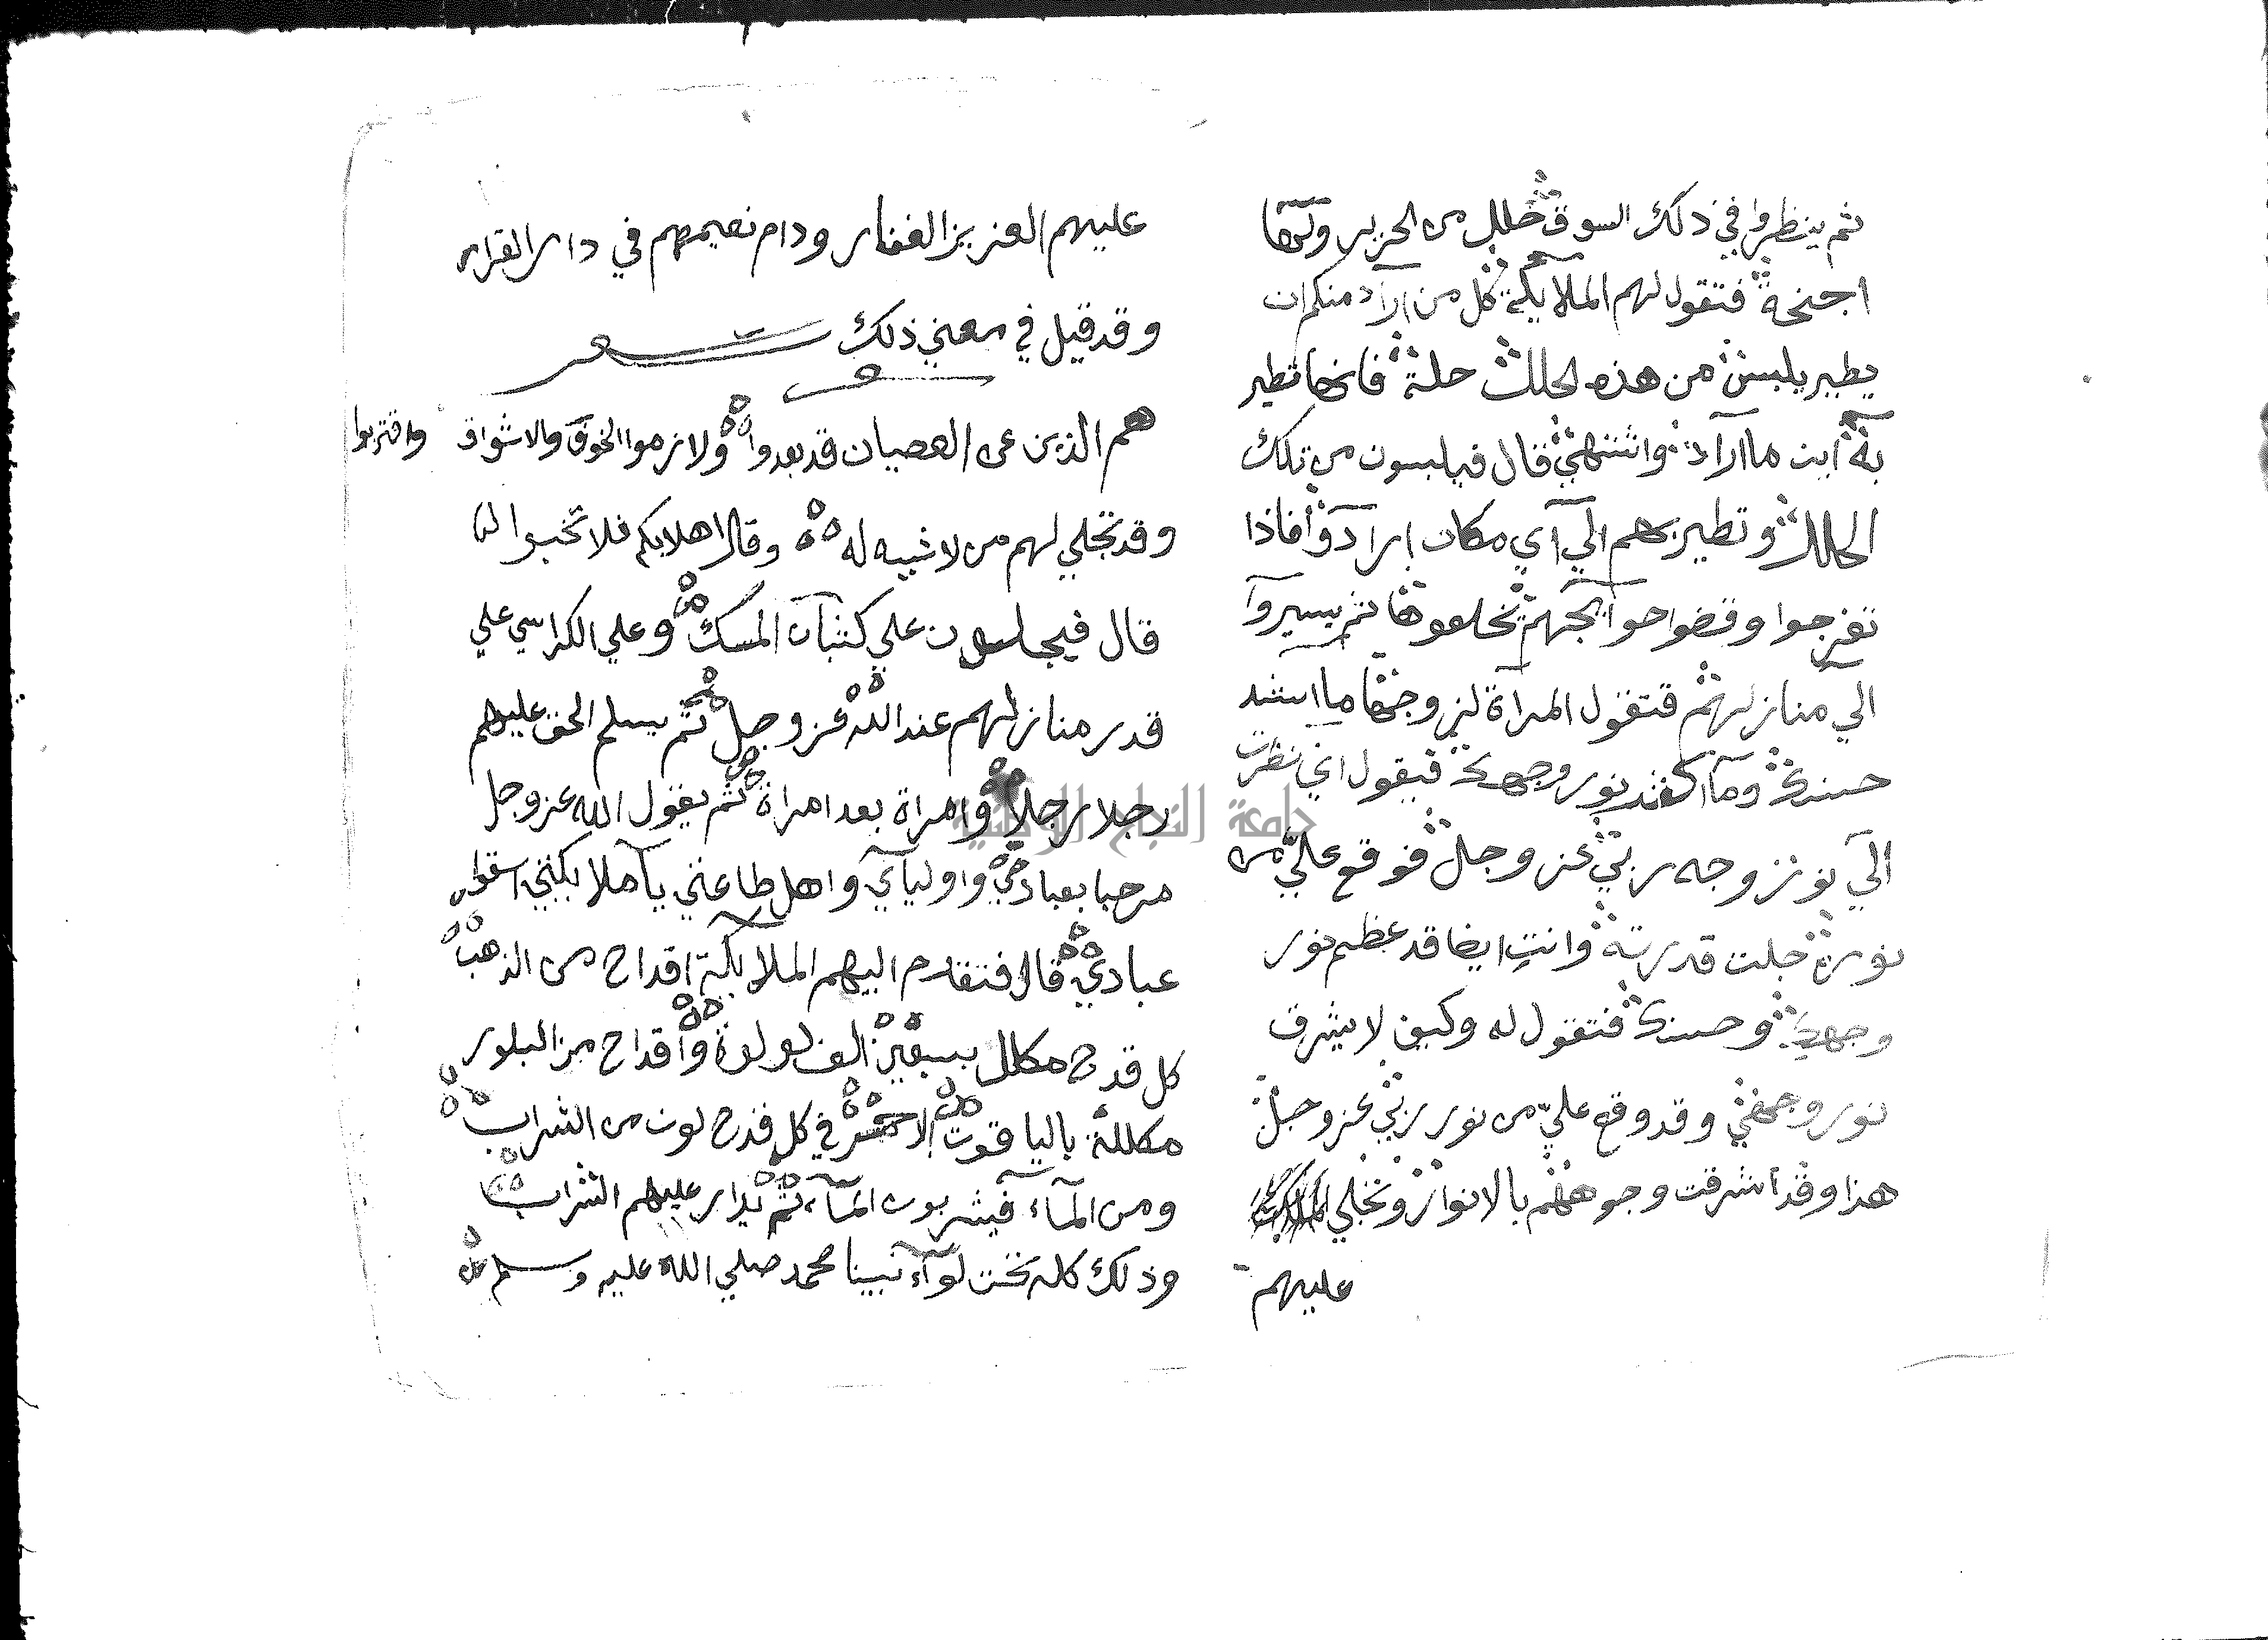 ثم ينظروا في ذلك السوق حلل من الحرير ولها
اجنحة فتقول لهم الملايكة كل من اراد منكم ان
يطير يلبس من هذه الحلل حلة فانها تطير
به اين ما اراد واشتهي قال فيلبسون من تلك
الحلل وتطير بهم الي اي مكان ارادوا فاذا
تفرجوا وقضوا حوايجهم يخلعوها ثم يسيروا
الي منازلهم فتقول المراة لزوجها ما اشد
حسنك وما اشد نور وجهك فيقول اني نظرت
الي نور وجه ربي عز وجل فوقع علي من
نوره جلت قدرته وانت ايضا قد عظم نور
وجهك وحسنك فتقول له وكيف لا يشرق
نور وجهي وقد وقع علي من نور ربي عز وجل
هذا وقد اشرقت وجوههم بالانوار وتجلي
عليهم
عليهم العزيز الغفار ودام نعيمهم في دار القرار
وقد قيل في معني ذلك شعر
هم الذين عن العصيان قد بعدوا ولازموا الخوف والاشواق واقتربوا
وقد تجلي لهم من لا شبيه له وقال اهلا بكم فلا تحبوا لنا
قال فيجلسون علي كثبان المسك وعلي الكراسي علي
قدر منازلهم عند الله عز وجل ثم يسلم الحق عليهم
رجلا رجلا وامراة بعد امراة ثم يقول الله عز وجل
مرحبا بعبادي واوليآي واهل طاعتي يا ملايكتي اسقوا
عبادي قال فتقدم اليهم الملايكة اقداح من الذهب
كل قدح مكلل بسبعين الف لولوة واقداح من البلور
مكللة بالياقوت الاحمر في كل قدح لون من الشراب
ومن المآء فيشربون المآء ثم يدار عليهم الشراب
وذلك كله تحت لوآء نبينا محمد صلي الله عليه وسلم
جامعة النجاح الوطنية